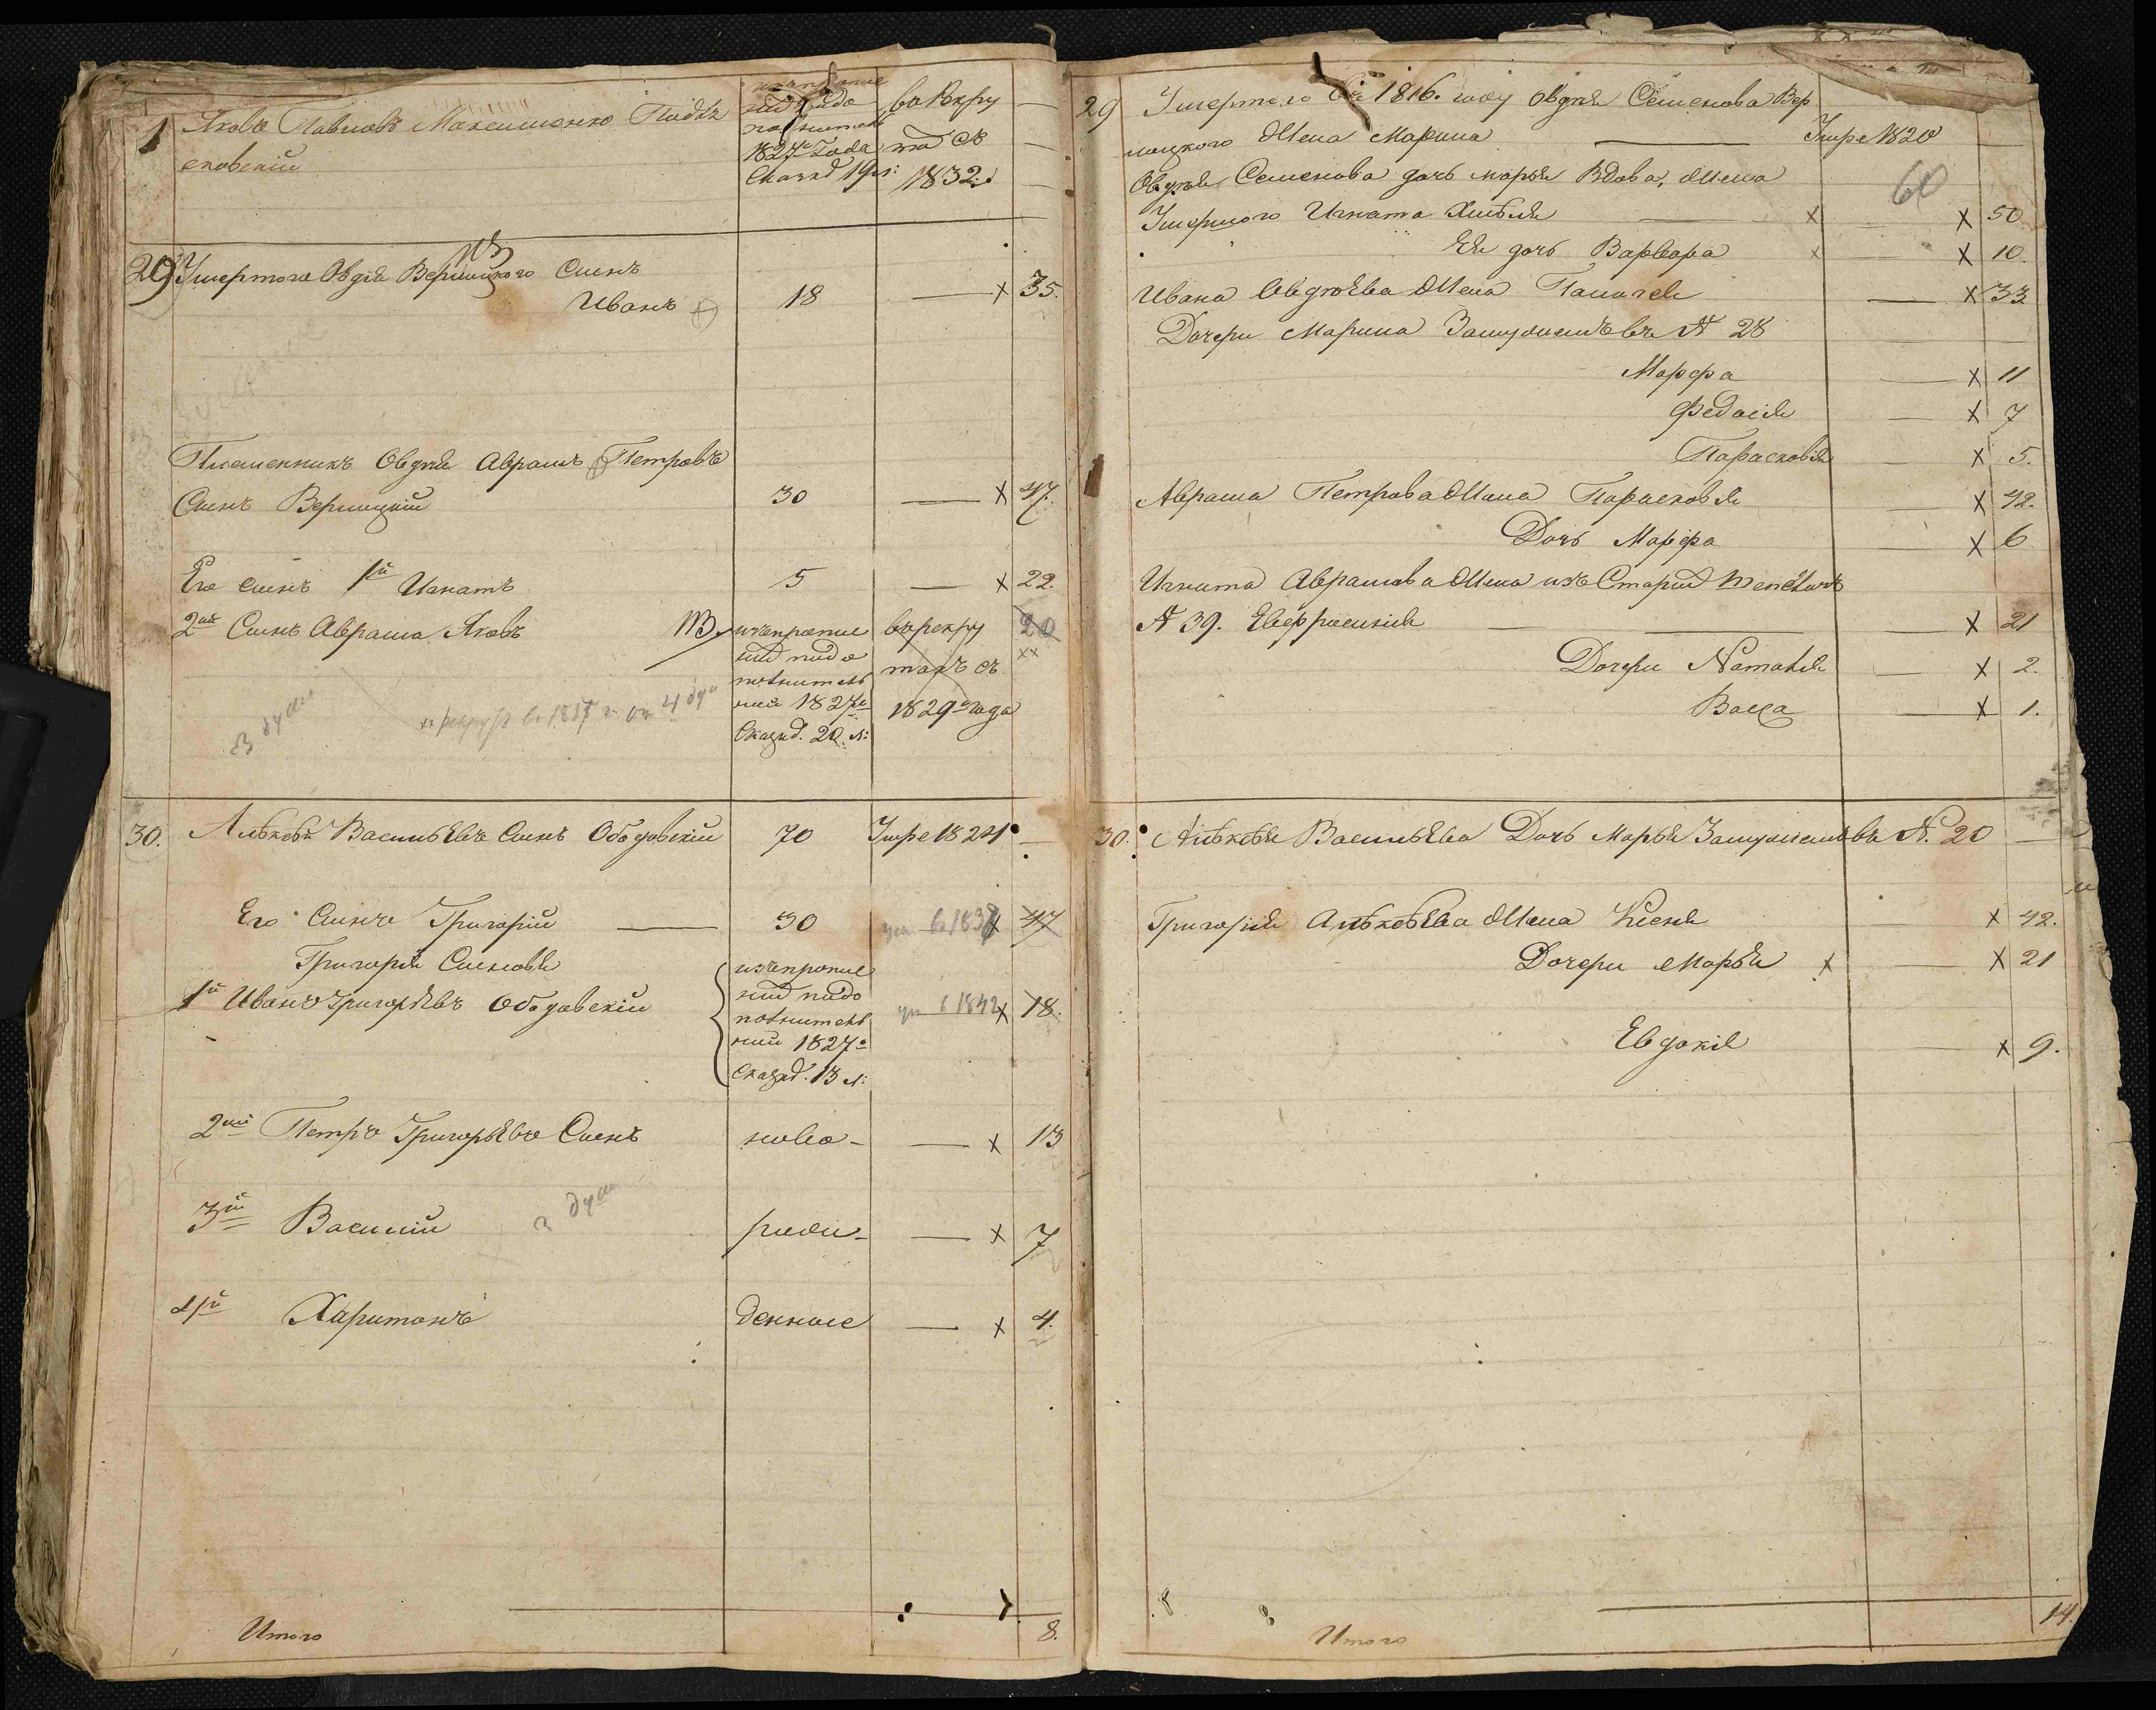 1 Яковъ Павловъ Максименко Подъя
сковскій
1827го Года
Сказкѣ 19 л:
въ Рекру
та съ
1832:
29 Умершого Овдія Верницкого Сынъ
Иванъ 18 — х 35.
Племенникъ Овдѣя Аврамъ Петровъ
Сынъ Верницкій 30 — х 47.
Его сынъ 1й Игнатъ 5 — х 22.
2ий Сынъ Аврама Яковъ
изъ
1827го
Сказкѣ. 20. л:
въ рекру
тахъ съ
1829го года
20
хх
3 душ
хх рекрут въ 1837 г. 4 душ
30. Алѣксѣй Васильѣвъ Сынъ Ободовскій 70 Умре 1824 —
Его Сынъ Григорій — 30 ум въ 183 х 47
Григорія Сыновья
1й Иванъ Григорьѣвъ Ободовскій
1827го
Сказкѣ. 13 л:
ум в 1842 х 18.
2ий Петръ Григорьѣвъ Сынъ ново- — х 13
3й Василій 3 душ рож- — х 7
4й Харитонъ денные — х 4.
Итого 8.
29 Умершого въ 1816. году Овдѣя Семенова Вер
ницкого Жена Марина — Умре 1820 —
60
Овдѣя Семенова дочь Марья Вдова, Жена
Умершого Игната — х х 50
Ея дочь Варвара х — х 10.
Ивана Овдѣева Жена Палагея — х 33
Дочери Марина Замужемъ въ № 28
Марфа — х 11
Федосія — х 7
Парасковія — х 5.
Аврама Петрова Жена Парасковья — х 42.
Дочь Марфа — х 6
Игната Аврамова Жена изъ Старой
№ 39. Евфросинія — х 21
Дочери Наталія — х 2.
Васса — х 1.
30. Алѣксѣя Васильѣва Дочь Марья Замужемъ въ №. 20 —
Григорія Алѣксѣева Жена Ксенія х 42.
Дочери Марья х — х 21
Евдокія — х 9.
Итого 14.